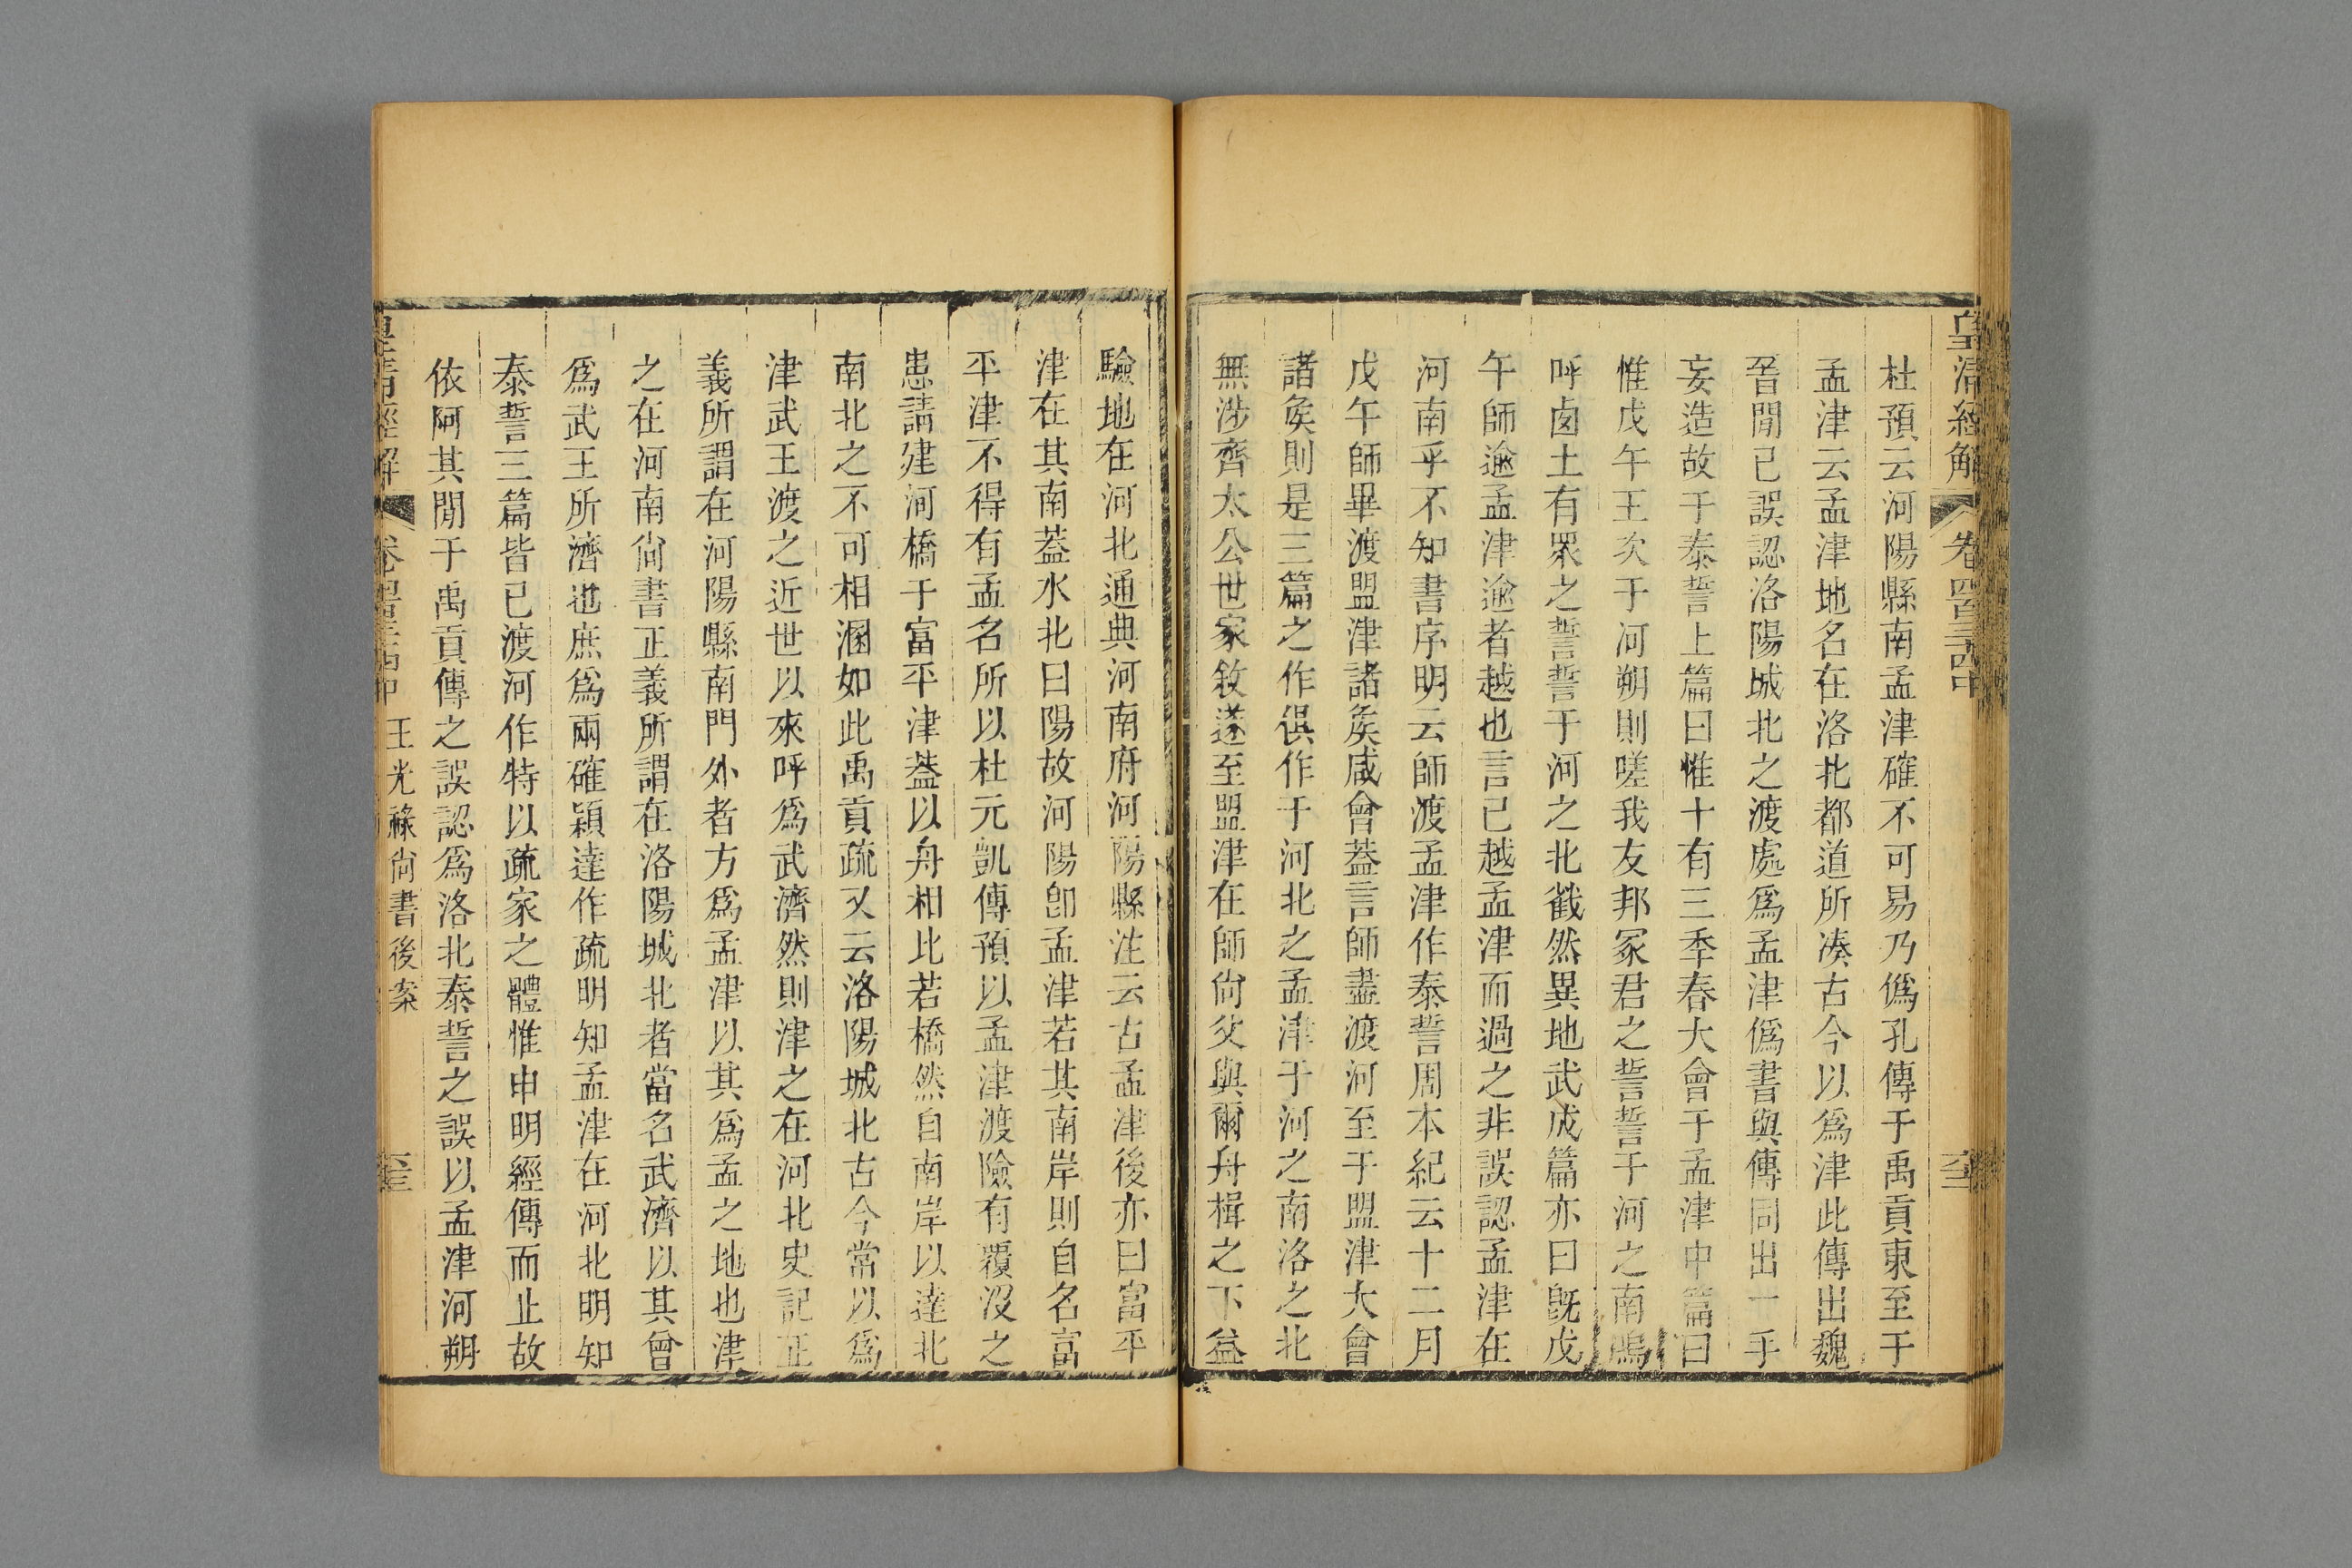 皇清經解
卷四百三十四中
杜預云河陽縣南孟津確不可易乃僞孔傳于禹貢東至于
孟津云孟津地名在洛北都道所凑古今以爲津此傳出魏
晉閒已誤認洛陽城北之渡處爲孟津僞書與傳同出一手
妄造故于泰誓上篇曰惟十有三季春大會于孟津中篇曰
惟戊午王次于河朔則嗟我友邦冢君之誓誓于河之南嗚
呼卤土有眾之誓誓于河之北截然異地武成篇亦曰旣戊
午師逾孟津逾者越也言已越孟津而過之非誤認孟津在
河南乎不知書序明云師渡孟津作泰誓周本紀云十二月
戊午師畢渡盟津諸矦咸會葢言師盡渡河至于盟津大會
諸矦則是三篇之作俱作于河北之孟津于河之南洛之北
無涉齊太公世家敘遂至盟津在師尙父與爾舟楫之下益
驗地在河北通典河南府河陽縣注云古孟津後亦曰富平
津在其南葢水北曰陽故河陽卽孟津若其南岸則自名富
平津不得有孟名所以杜元凱傳預以孟津渡險有覆沒之
患請建河橋于富平津葢以舟相比若橋然自南岸以達北
南北之不可相溷如此禹貢疏又云洛陽城北古今常以爲
津武王渡之近世以來呼爲武濟然則津之在河北史記正
義所謂在河陽縣南門外者方爲孟津以其爲孟之地也津
之在河南尙書正義所謂在洛陽城北者當名武濟以其曾
爲武王所濟也庶爲兩確穎達作疏明知孟津在河北明知
泰誓三篇皆已渡河作特以疏家之體惟申明經傳而止故
依阿其閒于禹貢傳之誤認爲洛北泰誓之誤以孟津河朔
皇清經解
卷四百三十四中 王光祿尙書後案